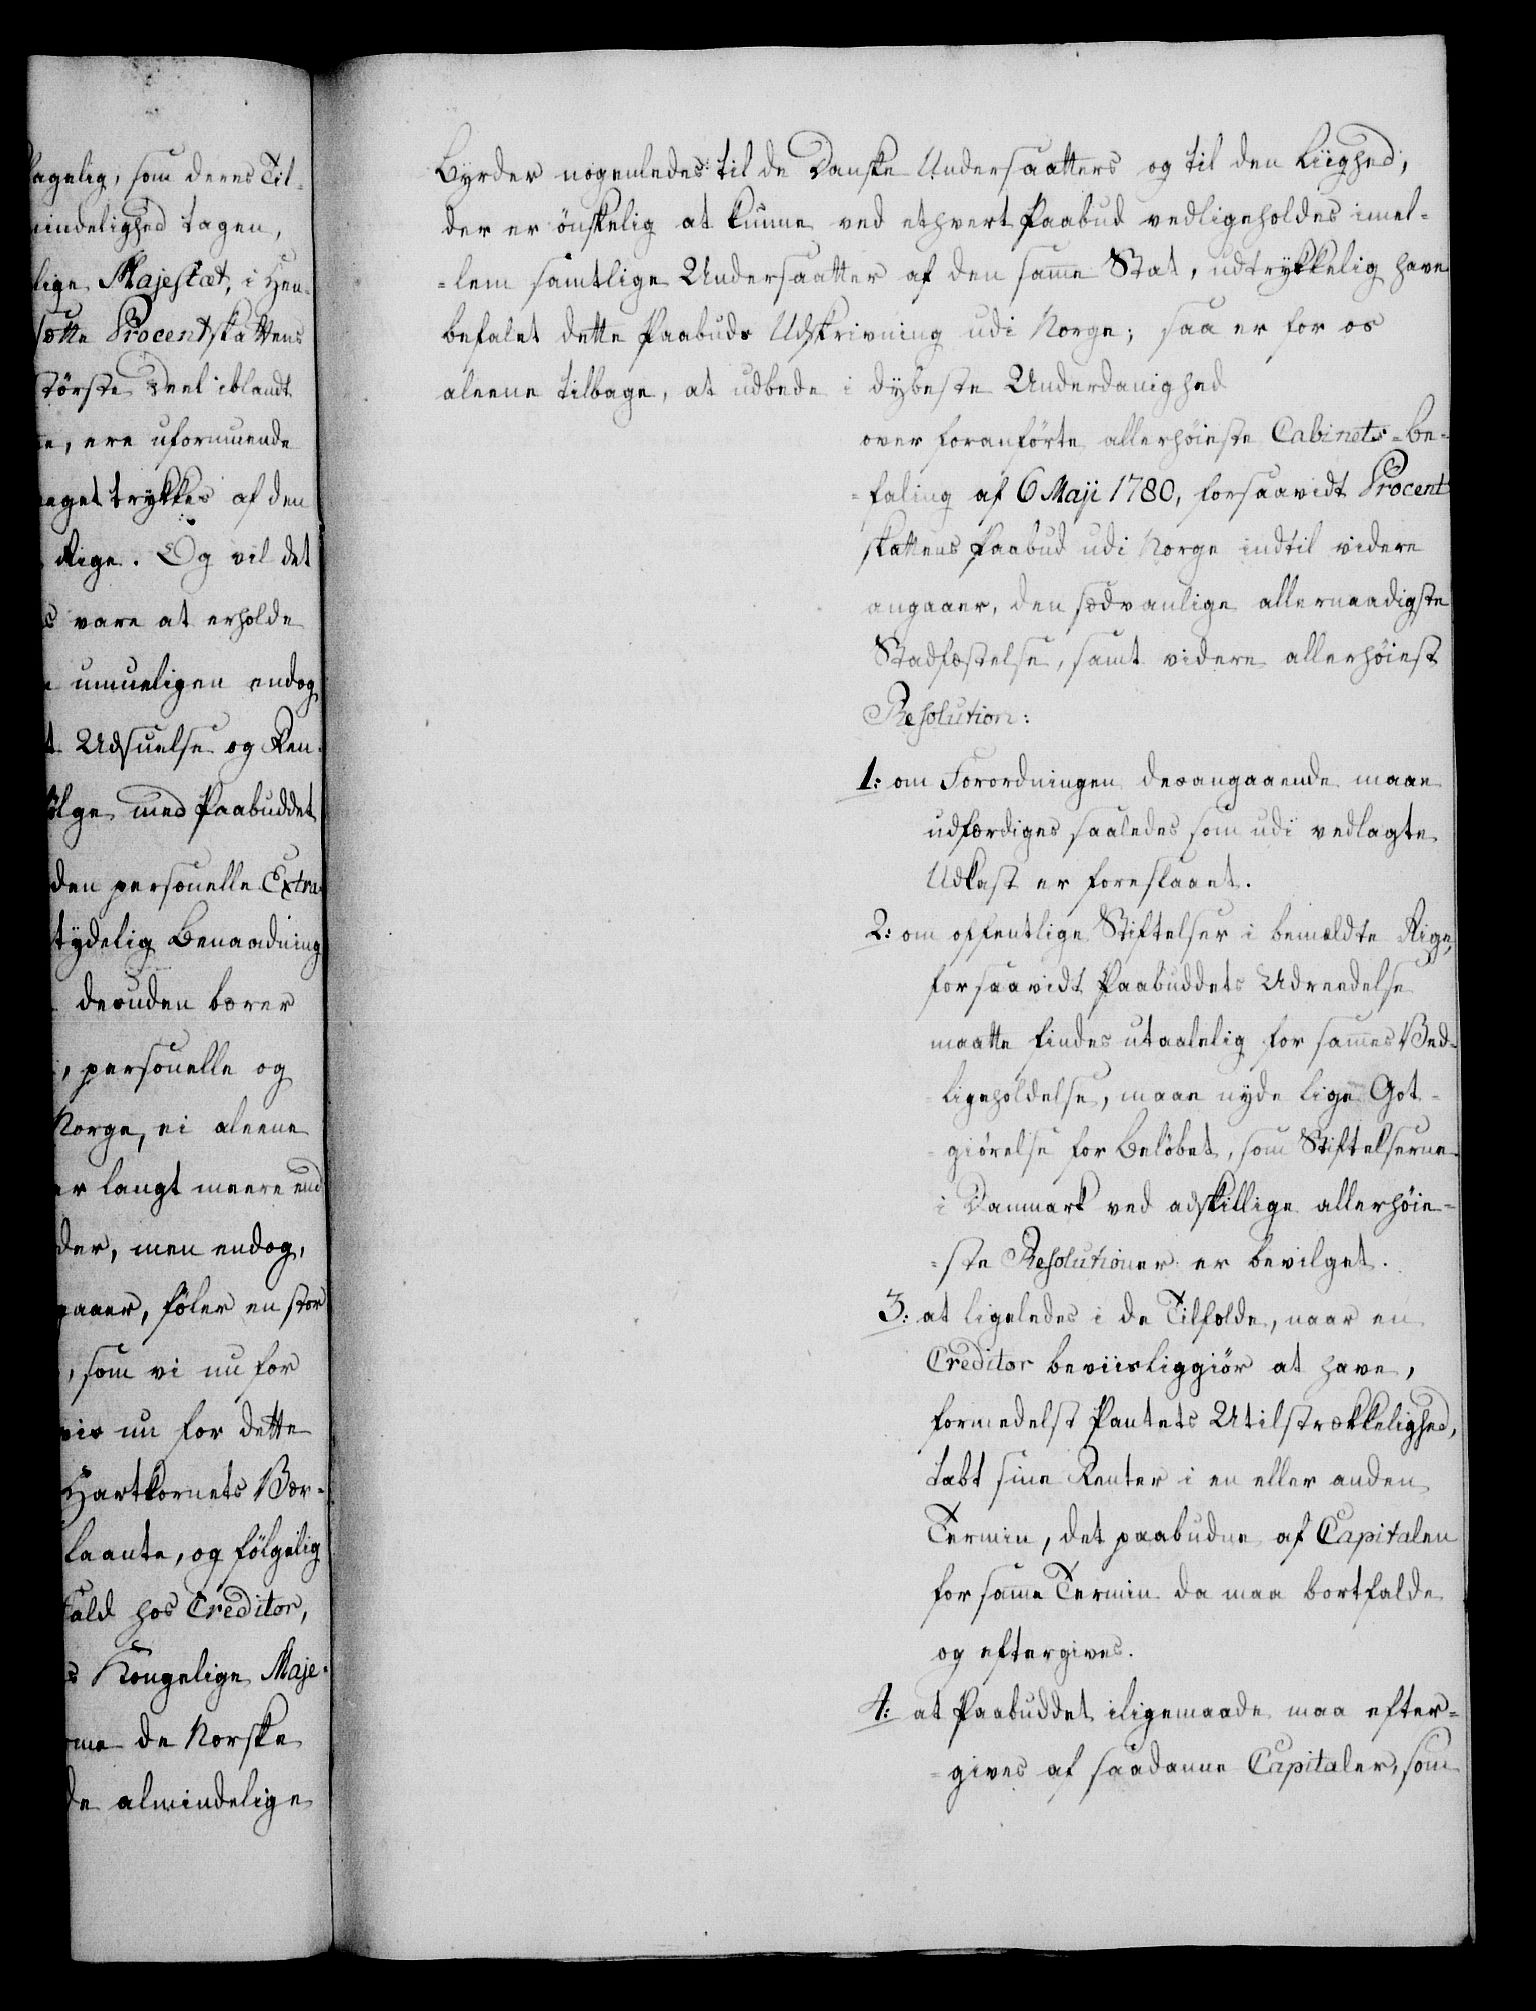 lagelig, som deres Til-
mindelighed tagen,
lige Majestæt, i Hen-
sætte Procentskattens
største Deel iblandt
e, ere uformuende
meget trykkes af den
Rige. Og vil det
s være at erholde
umueligen endog
t Udsuelse og Ren-
følge med Paabuddet
den personelle Extra
tydelig Benaadning
desuden bærer
, personelle og
Norge, ei aleene
er langt meere end
der, men endog,
gaaer, føler en stor
, som vi nu for
vis nu for dette
Hartkornets Vær-
laante, og følgelig
fald hos Creditor,
s Kongelige Maje-
me de Norske
de almindelige
Byrder nogenledes til de Danske Undersaatters og til den Liighed,
der er ønskelig at kunne ved ethvert Paabud vedligeholdes imel-
-lem samtlige Undersaatter af den samme Stat, udtrykkelig have
befalet dette Paabuds Udskrivning udi Norge; saa er for os
aleene tilbage, at udbede i dybeste Underdanighed
over foranførte allerhøieste Cabinets-be-
-faling af 6 Maji 1780, forsaavidt Procent
skattens Paabud udi Norge indtil videre
angaaer, den sædvanlige allernaadigste
Stadfæstelse, samt videre allerhøiest
Resolution:
1: om Forordningen desangaaende maae
udfærdiges saaledes som udi vedlagte
Udkast er foreslaaet.
2: om offentlige Stiftelser i bemældte Rige,
forsaavidt Paabuddets Udreedelse
maatte findes utaalelig for sammes Ved-
-ligeholdelse, maae nyde lige Got-
-giørelse for Beløbet, som Stiftelserne
i Danmark ved adskillige allerhøie-
-ste Resolutioner er bevilget.
3: at ligeledes i de Tilfælde, naar en
Creditor beviisliggiør at have,
formedelst Pantets Utilstrækkelighed,
tabt sine Renter i en eller anden
Termin, det paabudne af Capitalen
for samme Termin da maa bortfalde
og eftergives.
4: at Paabuddet iligemaade maa efter-
-gives af saadanne Capitaler, som